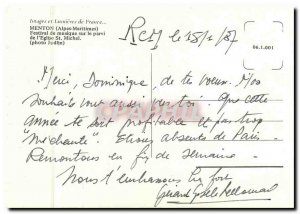 Images et Lumières de France...
MENTON (Alpes-Maritimes)
Festival de musique sur le parvi
de l'Eglise St. Michel.
(photo Jodbe)
06.1.001
RCM, le 15/1/87
Merci, Dominique, de te voeux. Mos
souhaits vont aussi vers toi. Que cette
année te soit profitable et pas trop
"méchante". Etions absents de Paris.
Remontons en fin de semaine.
Nous t'embrassons bien fort
Gérard